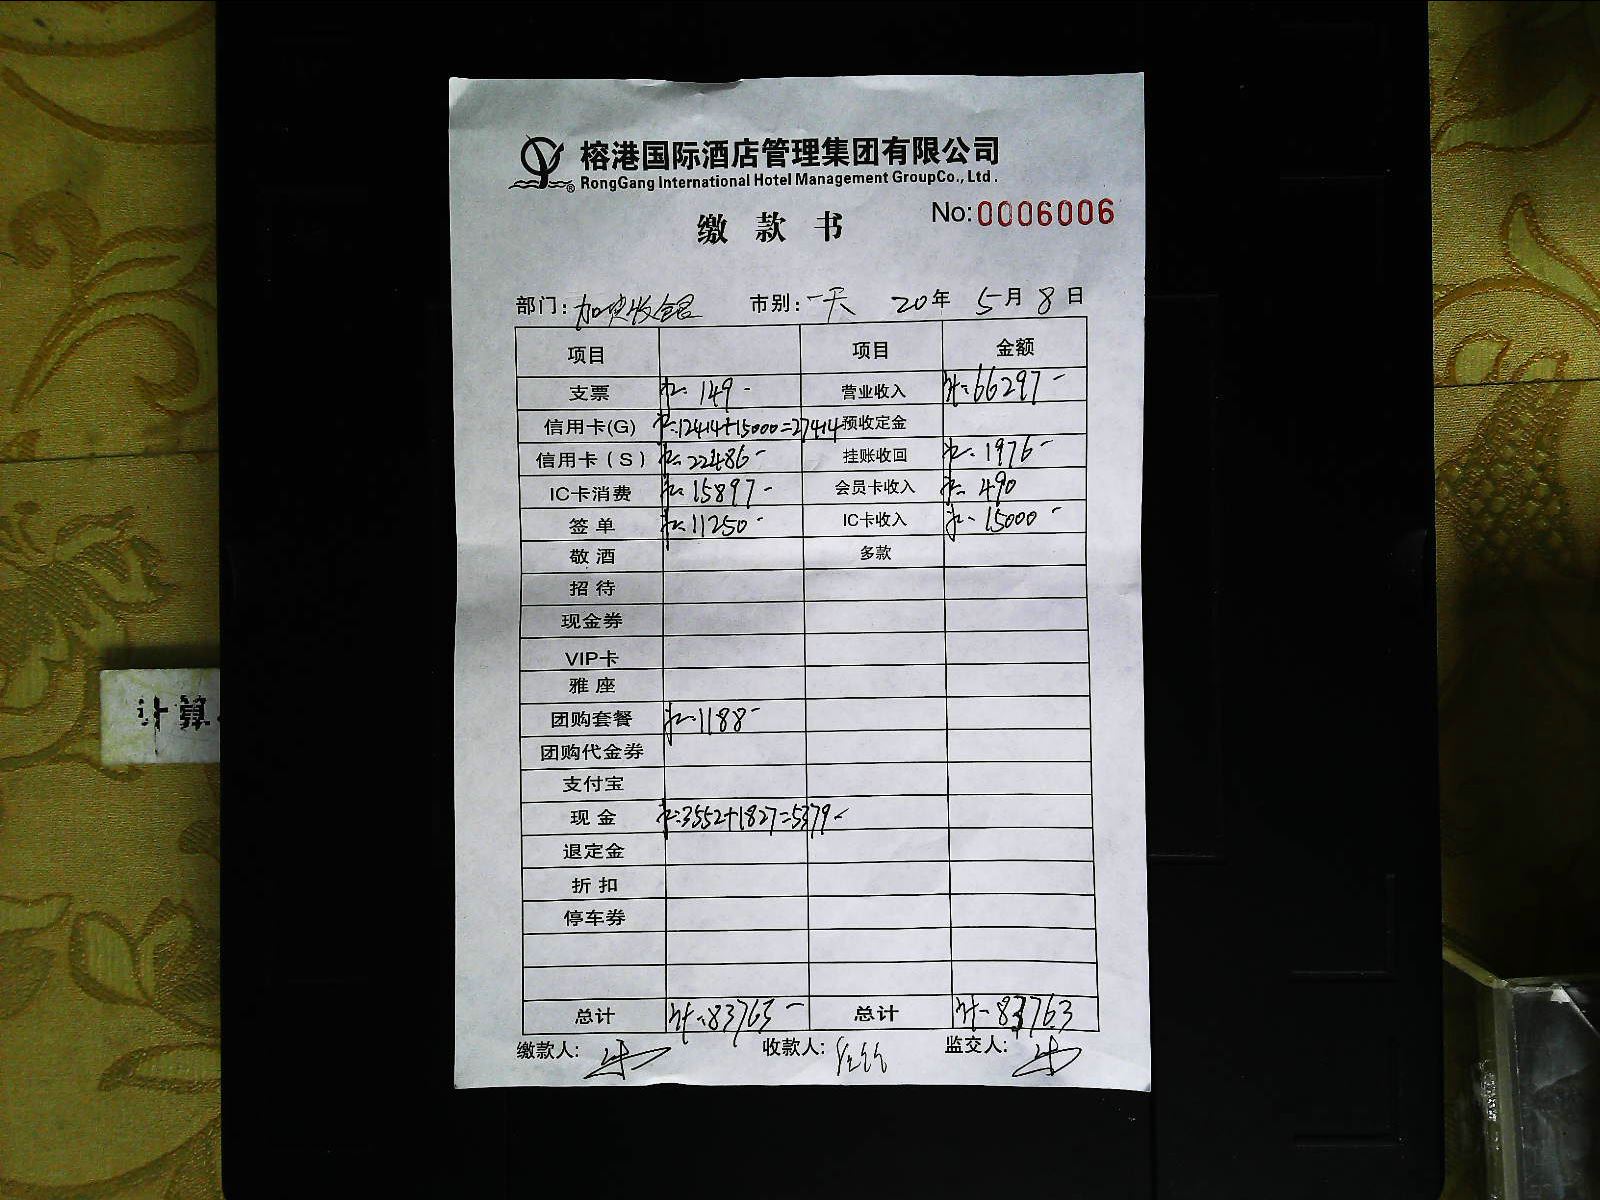 榕港国际酒店管理集团有限公司
RongGang International Hotel Management GroupCo., Ltd.
缴款书 No:0006006
部门: 收银 市别: 一天 20年 5月 8日
项目 项目 金额
支票 149- 营业收入 计:66297-
信用卡(G) 12414+15000=27414 预收定金
信用卡(S) 22486- 挂账收回 1976-
IC卡消费 15897- 会员卡收入 490
签单 11250- IC卡收入 15000-
敬酒 多款
招待
现金券
VIP卡
雅座
团购套餐 1188-
团购代金券
支付宝
现金 3552+1827=5379-
退定金
折扣
停车券
总计 计:83763- 总计 计-83763
缴款人: 收款人: 监交人:
计算